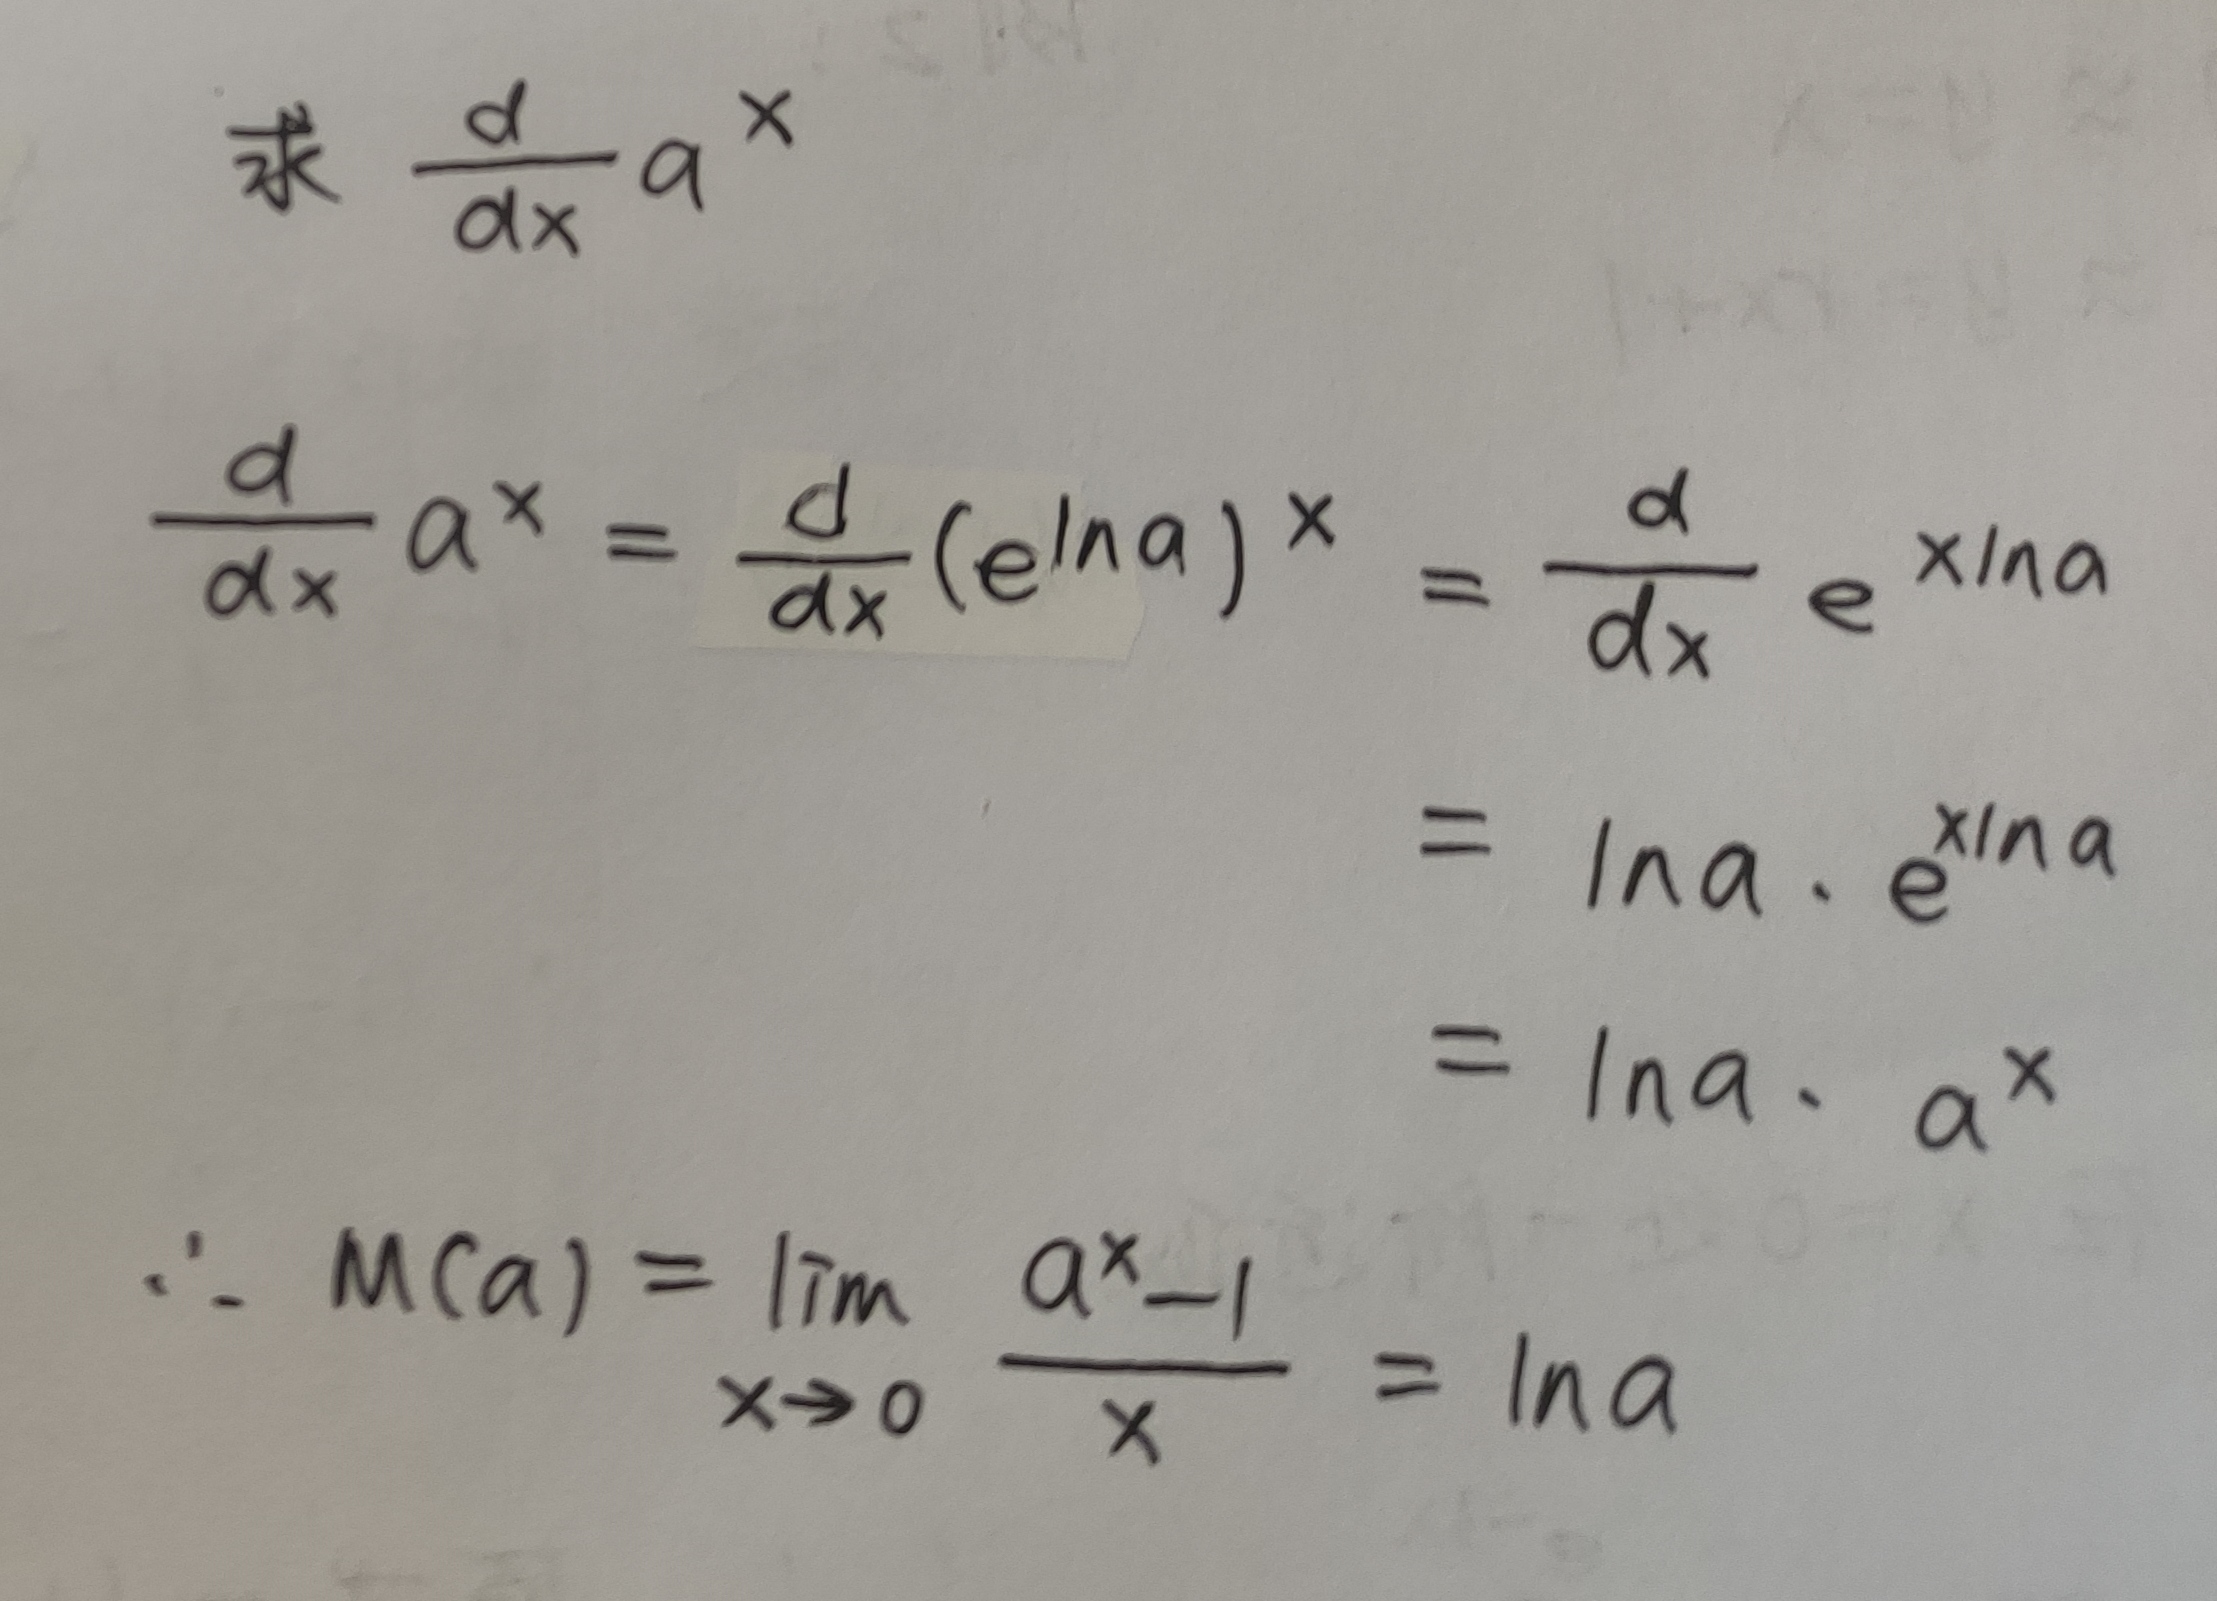 求 d/dx a^x
d/dx a^x = d/dx (e^ln a)^x = d/dx e^x ln a
= ln a · e^x ln a
= ln a · a^x
∴ M(a) = lim x→0 (a^x − 1)/x = ln a